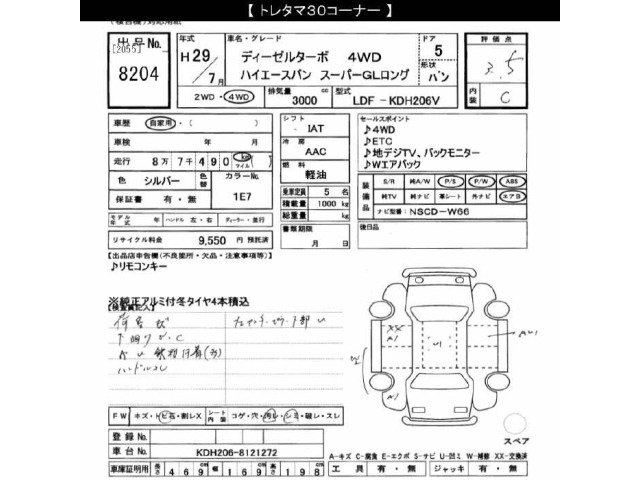 【 トレタマ30コーナー 】
出品No.
[2055]
8204
年式
H 29
7月
車名・グレード
ディーゼルターボ 4WD
ハイエースバン スーパーGLロング
ドア
5
形状
バン
評価点
3.5
内装
C
2WD・4WD
排気量
3000 cc
型式
LDF - KDH206V
車歴
自家用・( )
車検 年 月
走行 8万 7千 490 km マイル ( )
色 シルバー
色替
カラーNo.
1E7
保証書 有・無
モデル年式 年 ハンドル 左・右 ディーラー・並行
リサイクル料金 9,550 円 預託済
シフト
IAT
冷房
AAC
燃料
軽油
乗車定員 5 名
積載量 1000 kg
総重量 kg
書類期限
月 日
セールスポイント
♪4WD
♪ETC
♪地デジTV、バックモニター
♪Wエアバック
装備品
S/R 純A/W P/S P/W ABS
純TV 純ナビ 革シート 外ナビ エアB
ナビ型番:NSCD-W66
後日品
【出品店申告欄(不良箇所・欠品・注意事項等)】
♪リモコンキー
※純正アルミ付冬タイヤ4本積込
【検査員記入】
下回りサ.C
ハンドルスレ
FW キズ・トビ石・割レX
シート内装
コゲ・穴・汚レ・シミ・破レ・スレ
登録No.
車台No. KDH206-8121272
車庫証明用 長さ 469 cm 幅 169 cm 高さ 198 cm
スペア
A-キズ C-腐食 E-エクボ S-サビ U-凹ミ W-補修 XX-交換済
工具 有・無 ジャッキ 有・無